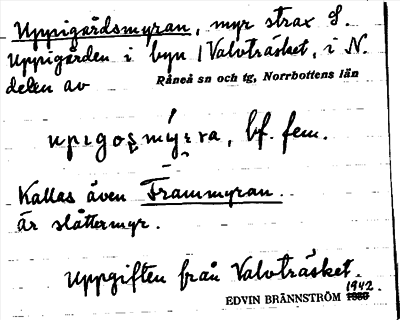 Uppigårdsmyran, myr strax S.
Uppigården i byn Valvträsket, i N.
delen av Råneå sn och tg, Norrbottens län
bf. fem.
Kallas även Frammyran
är slåttermyr.
Uppgiften från Valvträsket.
1942.
EDVIN BRÄNNSTRÖM